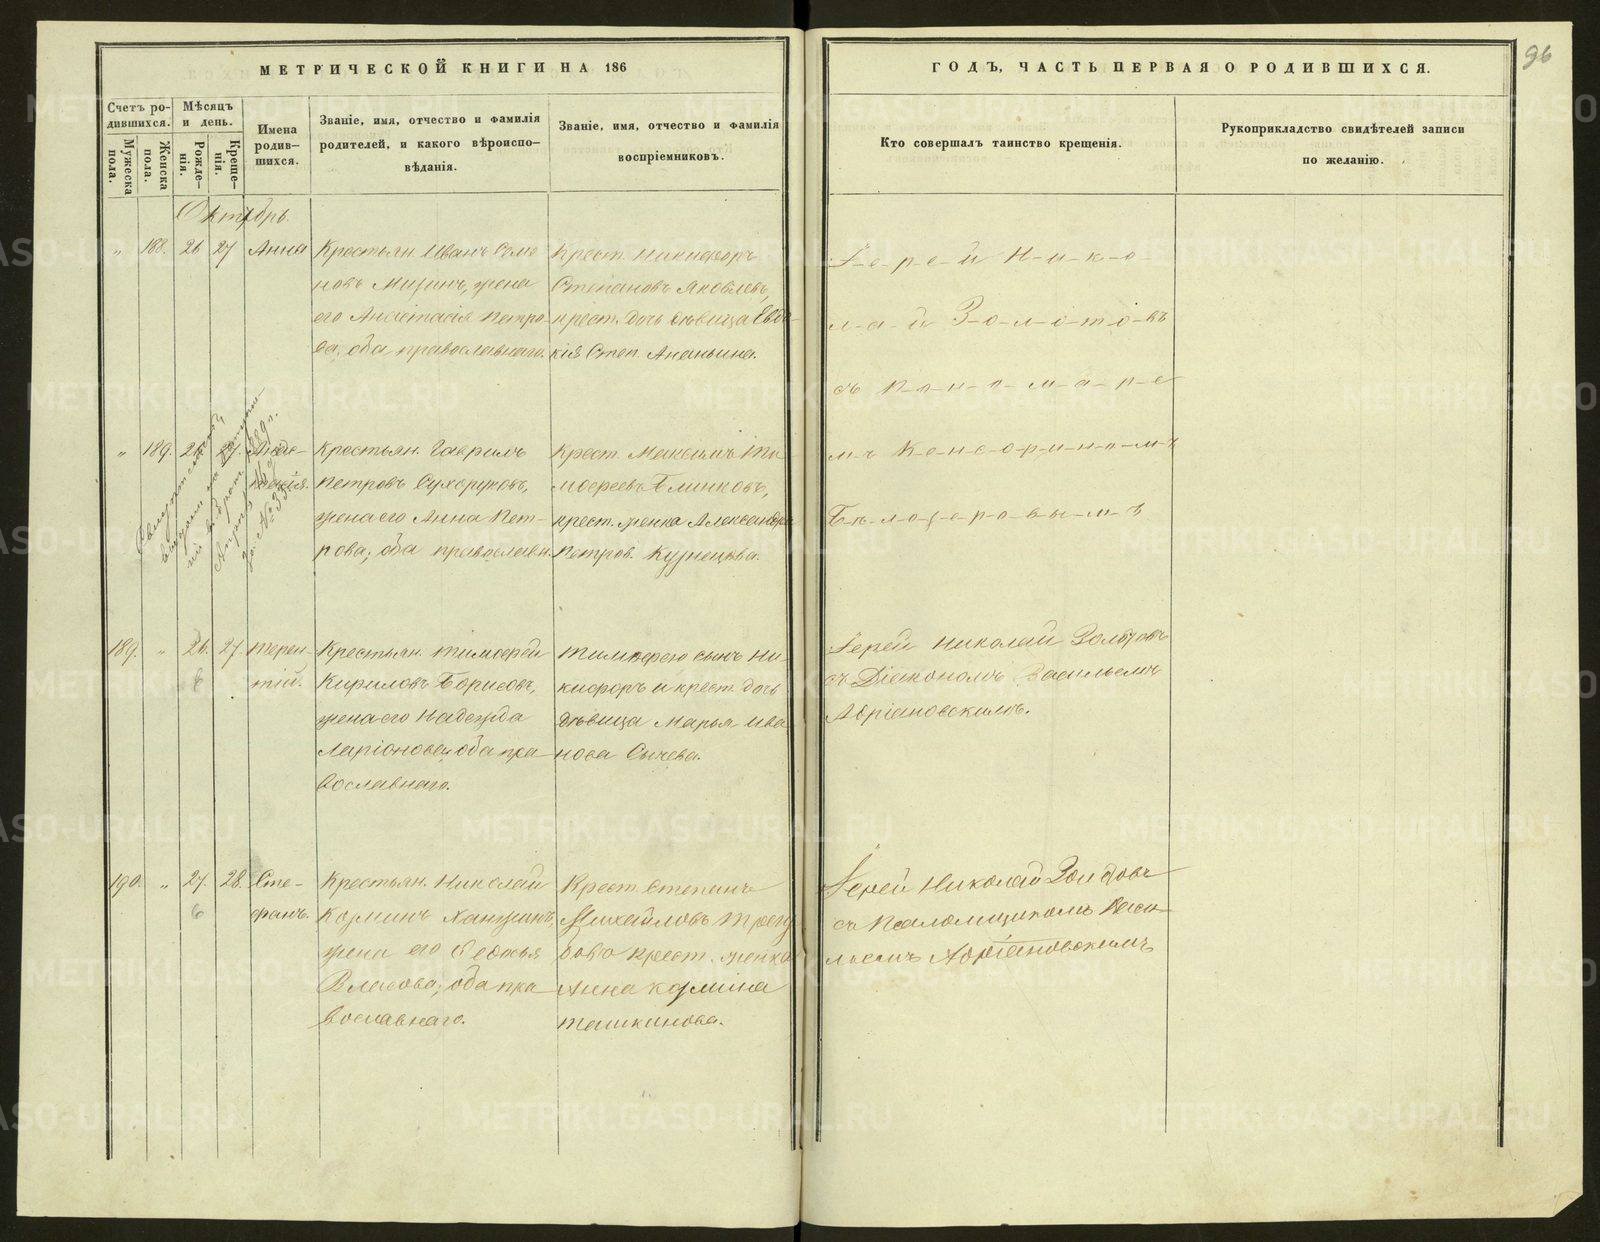 96
МЕТРИЧЕСКОЙ КНИГИ НА 186
ГОДЪ, ЧАСТЬ ПЕРВАЯ О РОДИВШИХСЯ.
Счетъ ро-
дившихся.
Мужеска
пола.
Женска
пола.
Мѣсяцъ
и день.
Рожде-
нія.
Креще-
нія.
Имена
родив-
шихся.
Званіе, имя, отчество и фамилія
родителей, и какого вѣроиспо-
вѣданія.
Званіе, имя, отчество и фамилія
воспріемниковъ.
Кто совершалъ таинство крещенія.
Рукоприкладство свидѣтелей записи
по желанію.
Октябрь
" 188. 26 27 Анна
Крестьян. Иванъ Семе
новъ жена
его Анастасія Петро-
ва, оба православнаго.
Крест. Никифоръ
Степановъ Яковлевъ,
крест. дочь дѣвица Евдо-
кія Степ. Ананьина.
І-е-р-е-й Н-и-к-о-
л-а-й З-о-л-о-т-о-въ
съ п-о-н-о-м-а-р-е-
мъ К-е-н-с-о-р-и-н-о-мъ
Б-ѣ-л-о-з-е-р-о-в-ы-м-ъ
" 189. 26. 27.
Крестьян. Гаврилъ
Петровъ Сухоруковъ,
жена его Анна Пет-
рова; оба православн.
Крест. Максимъ Ти-
моѳеевъ Блиновъ,
крест. женка Александра
Петров. Кузнецова.
189. " 26. 27. Терен-
тій.
Крестьян. Тимоѳей
Кириловъ Борисовъ,
жена его Надежда
Ларіонова оба пра-
вославнаго.
Тимоѳею сынъ Ни-
кифоръ и крест. дочь
дѣвица Марья Ива
нова Сычева.
Іерей Николай Золотовъ
съ Діакономъ Васильемъ
Адріановскимъ.
190. " 27. 28. Сте-
фанъ.
Крестьян. Николай
Козминъ
жена его Ѳедосья
Власова; оба пра-
вославнаго.
Крест. Степанъ
Михайловъ
крест. женка
Анна Козмина
Ташкинова.
Іерей Николай Золотовъ
съ Псаломщикомъ Васи-
льемъ Адріановскимъ